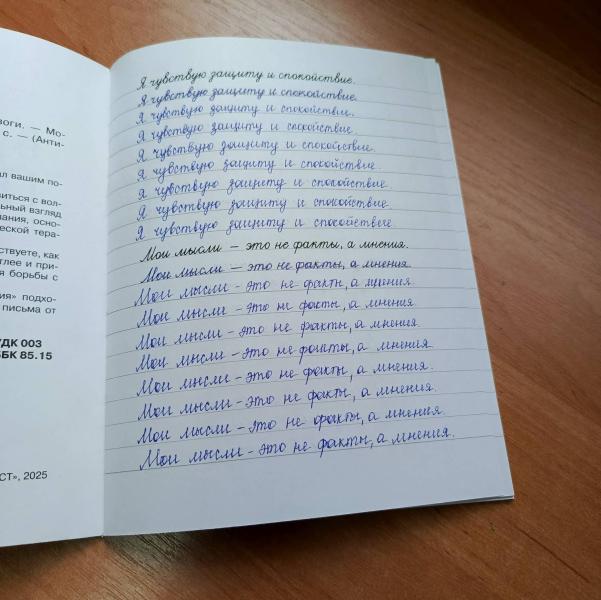 воги. — Мо-
с. — (Анти-
ал вашим по-
виться с вол-
льный взгляд
нания, осно-
ческой тера-
ствуете, как
глее и при-
я борьбы с
ния» подхо-
письма от
УДК 003
ББК 85.15
СТ», 2025
Я чувствую защиту и спокойствие.
Я чувствую защиту и спокойствие.
Я чувствую защиту и спокойствие.
Я чувствую защиту и спокойствие.
Я чувствую защиту и спокойствие.
Я чувствую защиту и спокойствие.
Я чувствую защиту и спокойствие.
Я чувствую защиту и спокойствие.
Я чувствую защиту и спокойствие.
Мои мысли — это не факты, а мнения.
Мои мысли — это не факты, а мнения.
Мои мысли - это не факты, а мнения.
Мои мысли - это не факты, а мнения
Мои мысли - это не факты, а мнения.
Мои мысли - это не факты, а мнения.
Мои мысли - это не факты, а мнения.
Мои мысли - это не факты, а мнения.
Мои мысли - это не факты, а мнения.
Мои мысли - это не факты, а мнения.